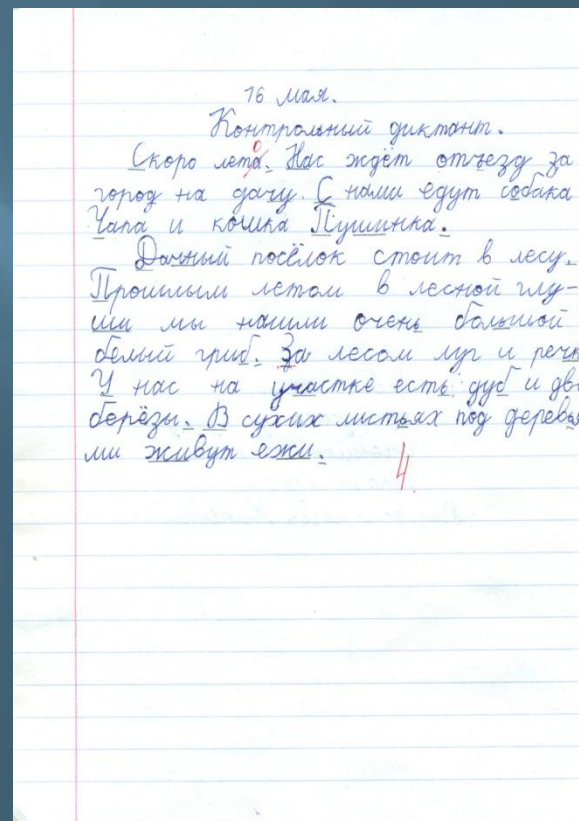 16 мая.
Контрольный диктант.
Скоро лета. Нас ждёт отъезд за
город на дачу. С нами едут собака
Чапа и кошка Пушинка.
Дачный посёлок стоит в лесу.
Прошлым летом в лесной глу-
ши мы нашли очень большой
белый гриб. За лесом луг и речк
У нас на участке есть дуб и дв
берёзы. В сухих листьях под деревья
ми живут ежи.
4